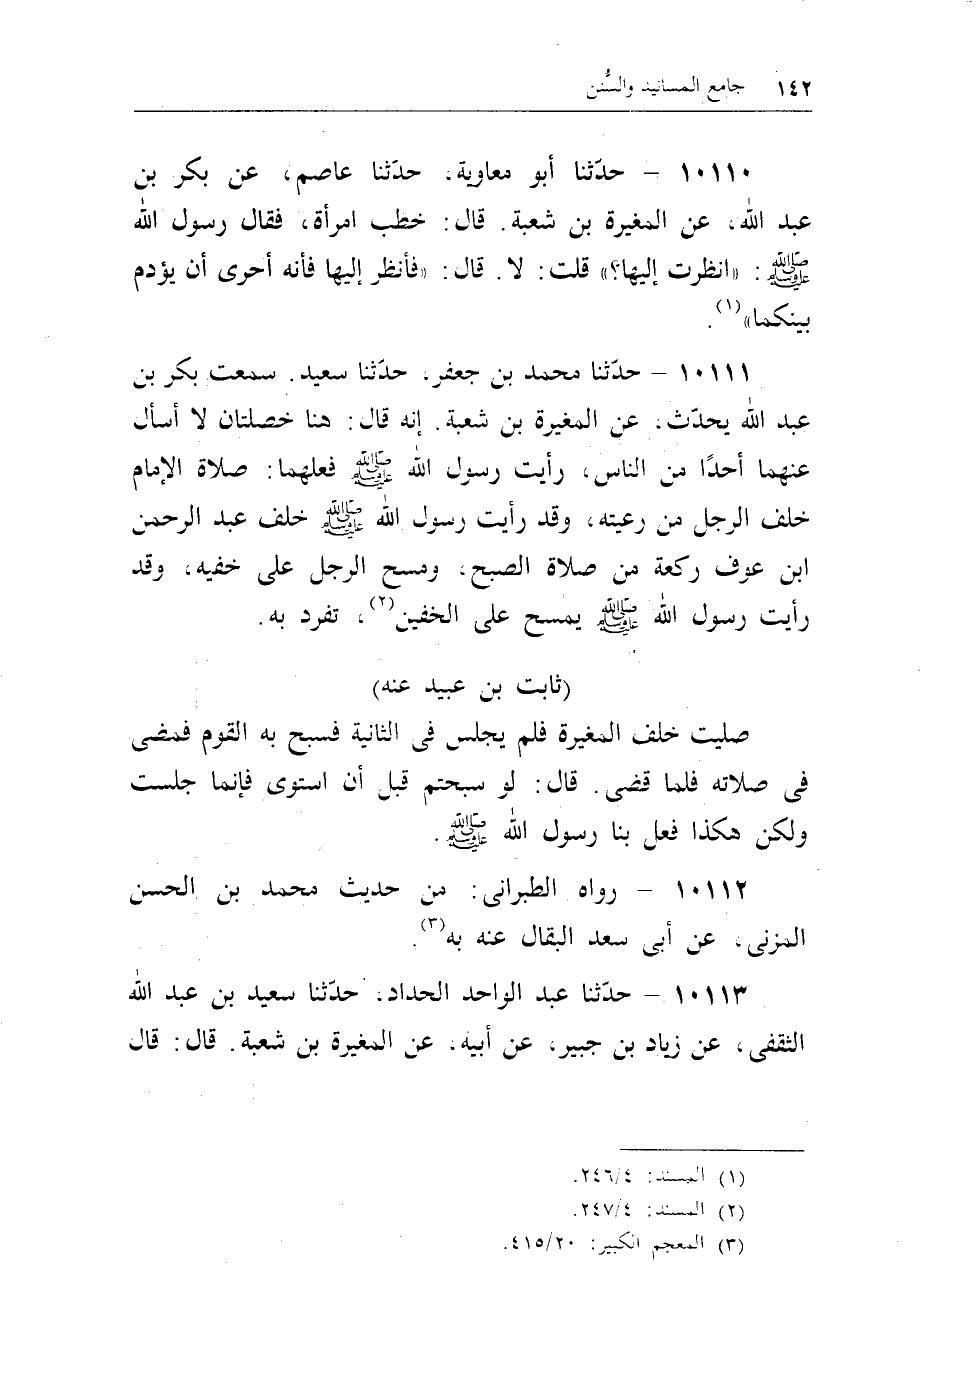 ١٤٢ جامع المسانيد والسُّنن
١٠١١٠ – حدّثنا أبو معاوية، حدّثنا عاصم، عن بكر بن
عبد الله، عن المغيرة بن شعبة. قال: خطب امرأة، فقال رسول الله
ﷺ: «انظرت إليها؟» قلت: لا. قال: «فأنظر إليها فأنه أحرى أن يؤدم
بينكما»(١).
١٠١١١ – حدّثنا محمد بن جعفر، حدّثنا سعيد. سمعت بكر بن
عبد الله يحدّث، عن المغيرة بن شعبة. إنه قال: هنا خصلتان لا أسأل
عنهما أحدًا من الناس، رأيت رسول الله ﷺ فعلهما: صلاة الإمام
خلف الرجل من رعيته، وقد رأيت رسول الله ﷺ خلف عبد الرحمن
ابن عوف ركعة من صلاة الصبح، ومسح الرجل على خفيه، وقد
رأيت رسول الله ﷺ يمسح على الخفين(٢)، تفرد به.
(ثابت بن عبيد عنه)
صليت خلف المغيرة فلم يجلس فى الثانية فسبح به القوم فمضى
فى صلاته فلما قضى. قال: لو سبحتم قبل أن استوى فإنما جلست
ولكن هكذا فعل بنا رسول الله ﷺ.
١٠١١٢ – رواه الطبرانى: من حديث محمد بن الحسن
المزنى، عن أبى سعد البقال عنه به(٣).
١٠١١٣ – حدّثنا عبد الواحد الحداد، حدّثنا سعيد بن عبد الله
الثقفى، عن زياد بن جبير، عن أبيه، عن المغيرة بن شعبة. قال: قال
(١) المسند: ٢٤٦/٤.
(٢) المسند: ٢٤٧/٤.
(٣) المعجم الكبير: ٤١٥/٢٠.